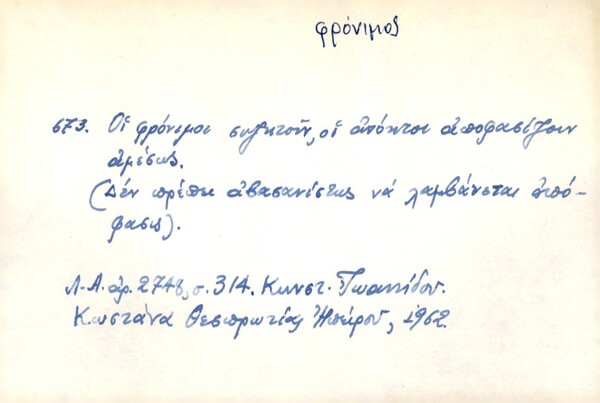 φρόνιμος
673. Οἱ φρόνιμοι συζητοῦν, οἱ ἀπόκοτοι ἀποφασίζουν
ἀμέσως.
(Δέν πρέπει ἀβασανίστως νά λαμβάνεται ἀπό-
φασις).
Λ.Α. ἀρ. 2748, σ. 314. Κωνστ. Ἰωαννίδου.
Κωστάνα Θεσπρωτίας Ἠπείρου, 1962.